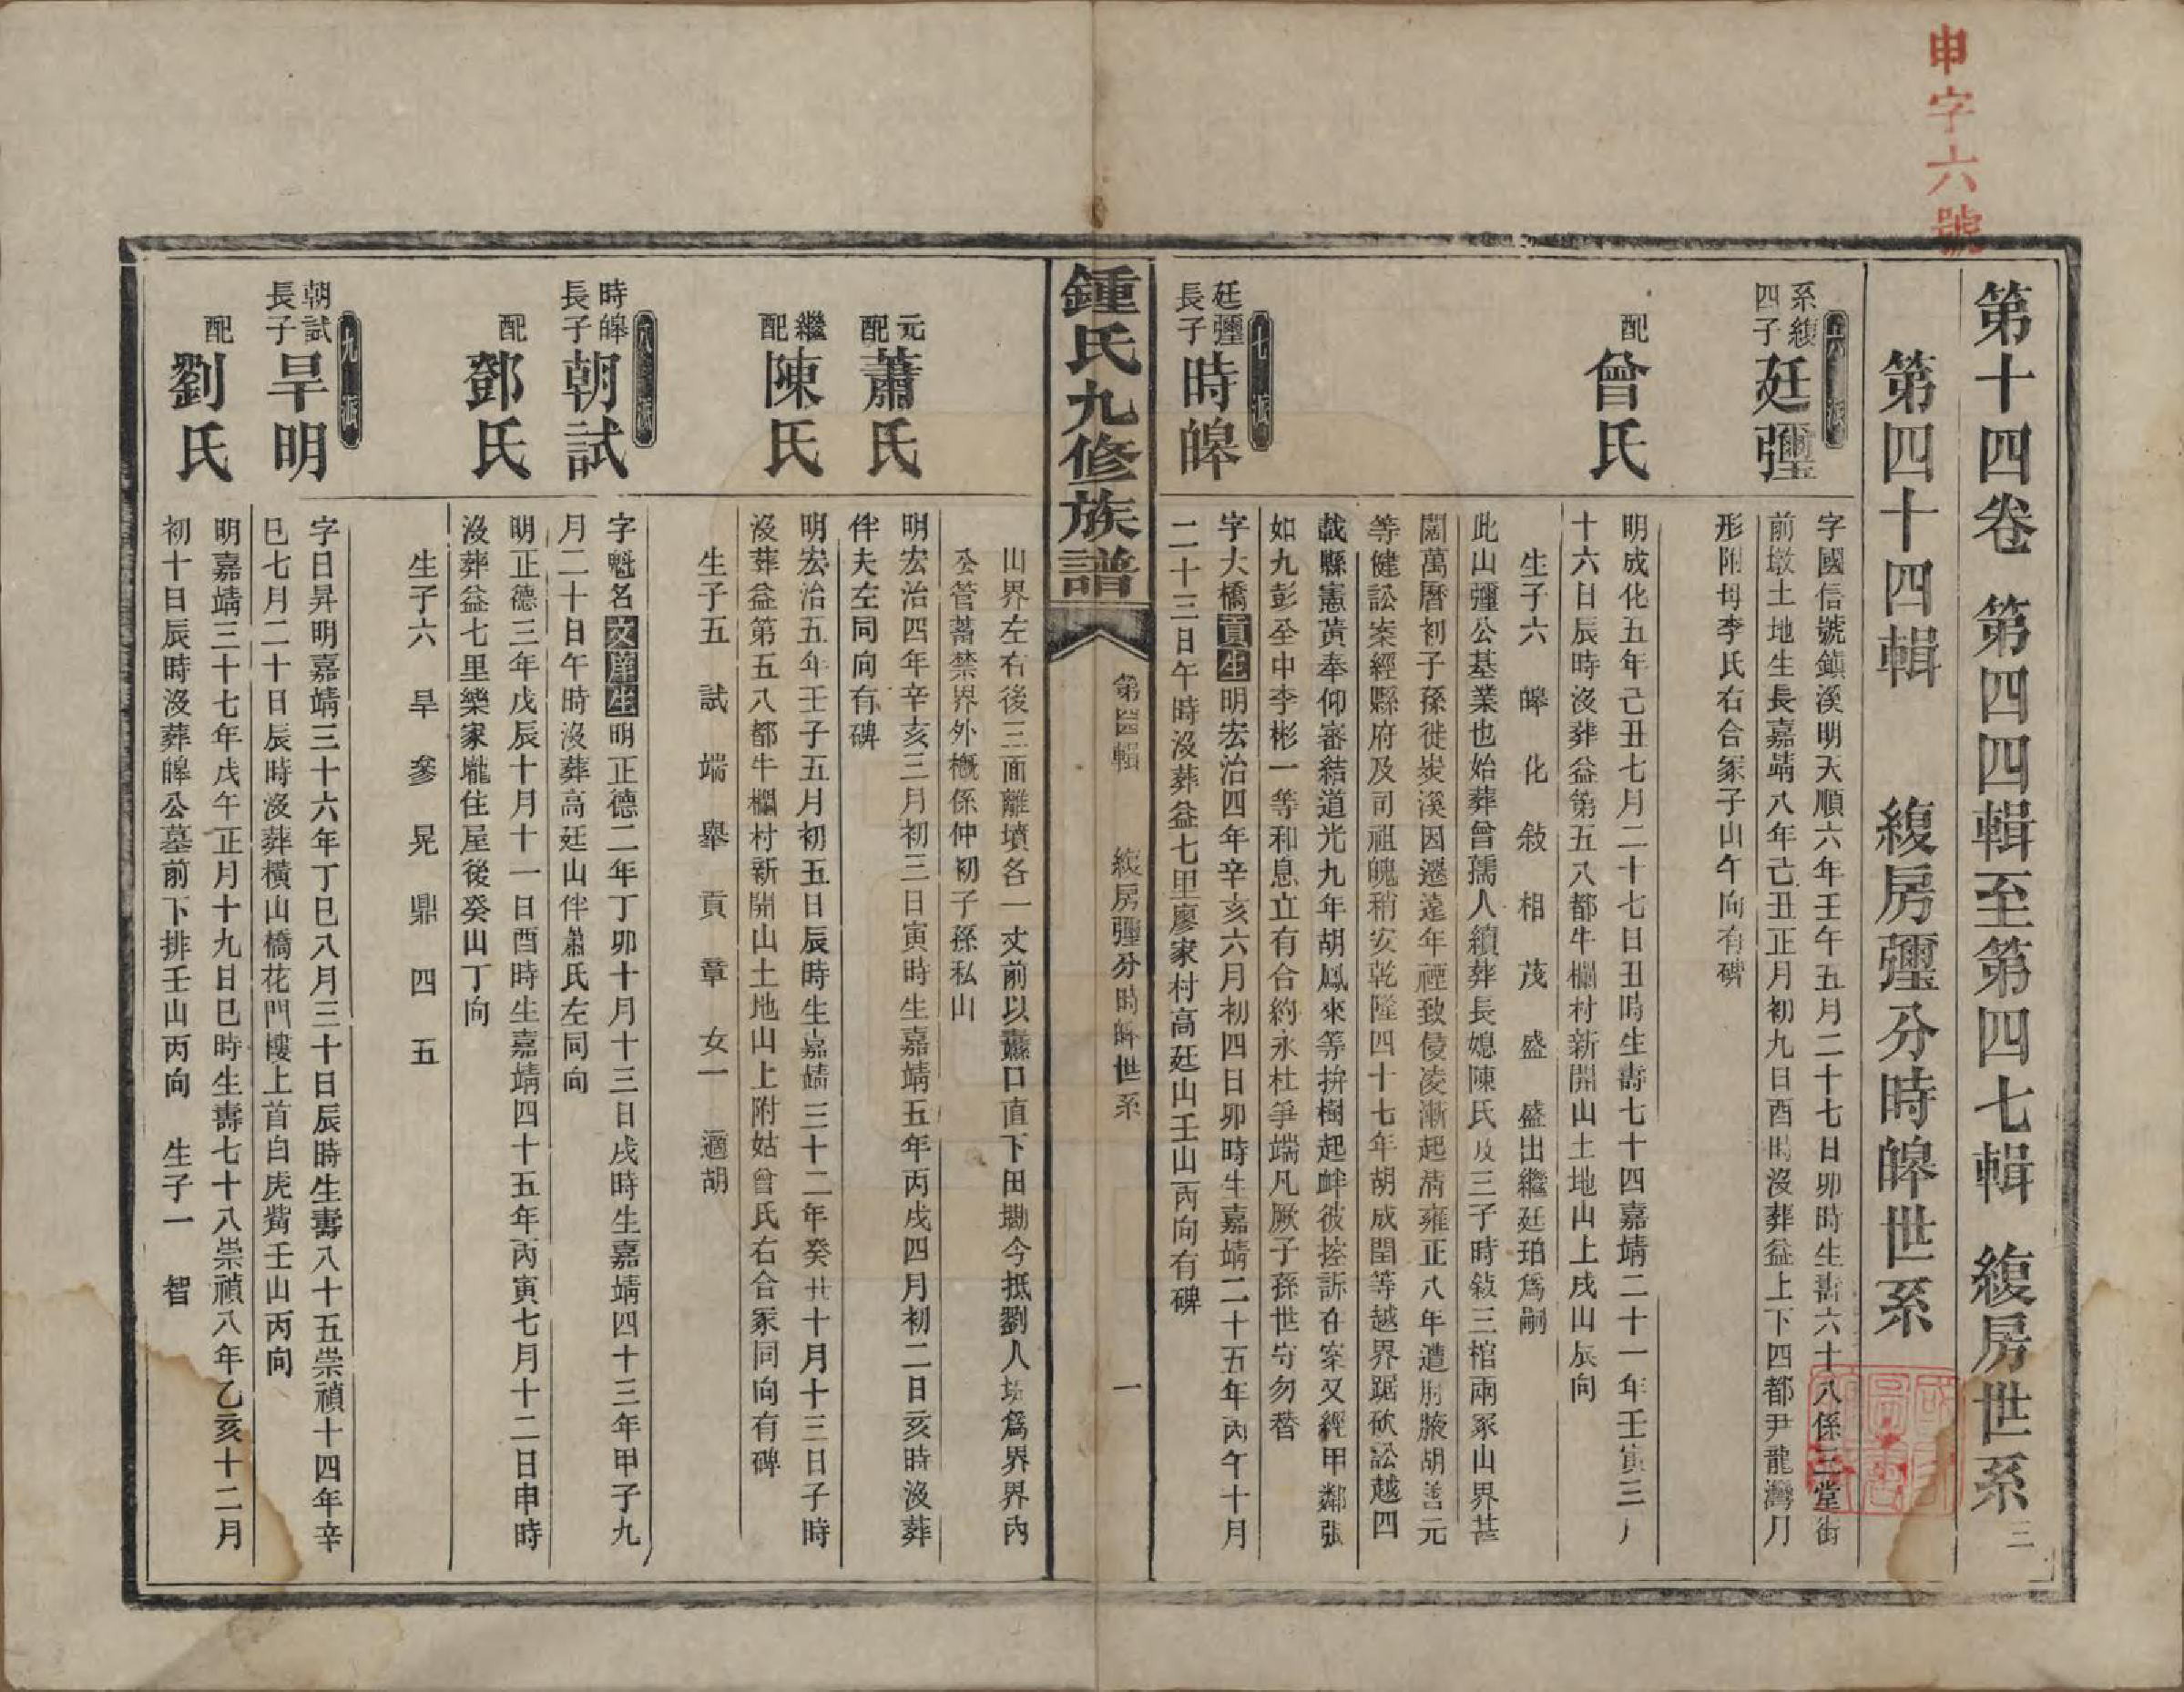 申字六號
第十四卷 第四四輯至第四七輯 緮房世系 三
第四十四輯 緮房彊分時皞世系
六派
系緮四子廷彊
字國信號鎮溪明天順六年壬午五月二十七日卯時生壽六十八係三堂街
前墩土地生長嘉靖八年己丑正月初九日酉時沒葬益上下四都尹龍灣月
形附母李氏右合冢子山午向有碑
配曾氏
明成化五年己丑七月二十七日丑時生壽七十四嘉靖二十一年壬寅三月
十六日辰時沒葬益第五八都牛欄村新開山土地山上戌山辰向
生子六 皞 化 敍 相 茂 盛 盛出繼廷珀爲嗣
此山彊公基業也始葬曾孺人續葬長媳陳氏及三子時敍三棺兩冢山界甚
闊萬曆初子孫徙炭溪因遷遠年禋致侵凌漸起清雍正八年遭肘腋胡善元
等健訟案經縣府及司祖魄稍安乾隆四十七年胡成閏等越界踞砍訟越四
載縣憲黃奉仰審結道光九年胡鳳來等拚樹起衅彼控訴在案又經甲鄰張
如九彭至中李彬一等和息立有合約永杜爭端凡厥子孫世守勿替
七派
廷彊長子時皞
字大橋貢生明宏治四年辛亥六月初四日卯時生嘉靖二十五年丙午十月
二十三日午時沒葬益七里廖家村高廷山壬山丙向有碑
鍾氏九修族譜
第四四輯 緮房彊分時皞世系 一
山界左右後三面離墳各一丈前以蠹口直下田墈今抵劉人坟爲界界內
公管蓄禁界外概係仲初子孫私山
元配蕭氏
明宏治四年辛亥三月初三日寅時生嘉靖五年丙戌四月初二日亥時沒葬
伴夫左同向有碑
繼配陳氏
明宏治五年壬子五月初五日辰時生嘉靖三十二年癸丑十月十三日子時
沒葬益第五八都牛欄村新開山土地山上附姑曾氏右合冢同向有碑
生子五 試 端 舉 貢 章 女一 適胡
八派
時皞長子朝試
字魁名文庠生明正德二年丁卯十月十三日戌時生嘉靖四十三年甲子九
月二十日午時沒葬高廷山伴蕭氏左同向
配鄧氏
明正德三年戊辰十月十一日酉時生嘉靖四十五年丙寅七月十二日申時
沒葬益七里樂家壠住屋後癸山丁向
生子六 旱 參 晃 鼎 四 五
九派
朝試長子旱明
字日昇明嘉靖三十六年丁巳八月三十日辰時生壽八十五崇禎十四年辛
巳七月二十日辰時沒葬橫山橋花門樓上首白虎嘴壬山丙向
配劉氏
明嘉靖三十七年戊午正月十九日巳時生壽七十八崇禎八年乙亥十二月
初十日辰時沒葬皞公墓前下排壬山丙向 生子一 智